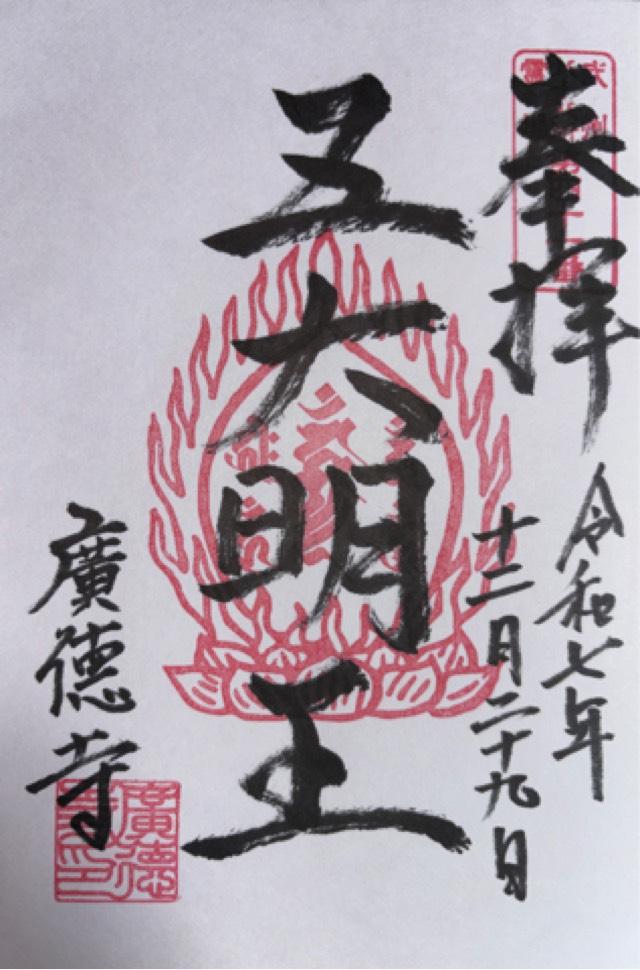 奉拝
令和七年
十二月二十九日
五大明王
廣徳寺
廣徳
寺印